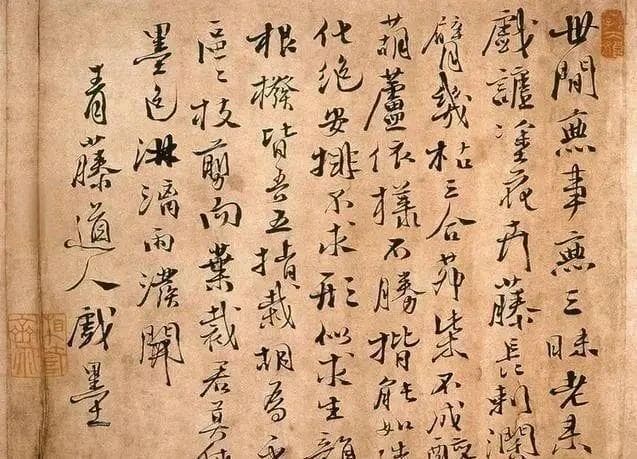 世間無事無三昧老來
戲謔塗花卉藤長刺濶
臂幾枯三合茆柴不成醉
葫蘆依樣不勝揩能如
化絶安排不求形似求生韻
根撥皆吾五指栽胡為
區〻枝剪而葉裁君莫
墨色淋漓雨潑開
青藤道人戲墨